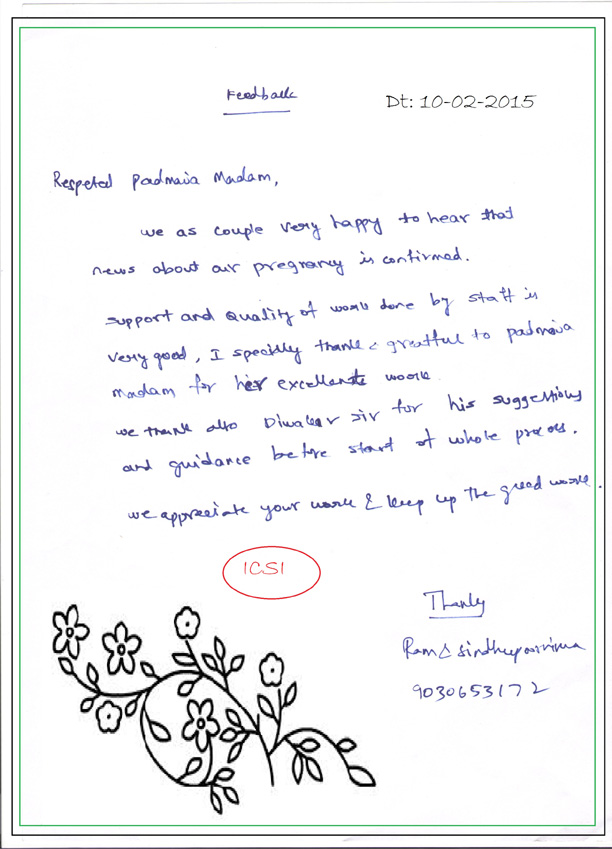 Feedback
Dt: 10-02-2015
Respeted Padmaja Madam,
we as couple very happy to hear that
news about our pregnancy is confirmed.
support and Quality of work done by staff is
very good, I specilly thank & greatful to padmaja
madam for her excellents work
we thank also Diwaker sir for his suggestions
and guidance before start of whole process.
we appreciate your work & keep up the good work.
ICSI
Thanks
Ram &
9030653172